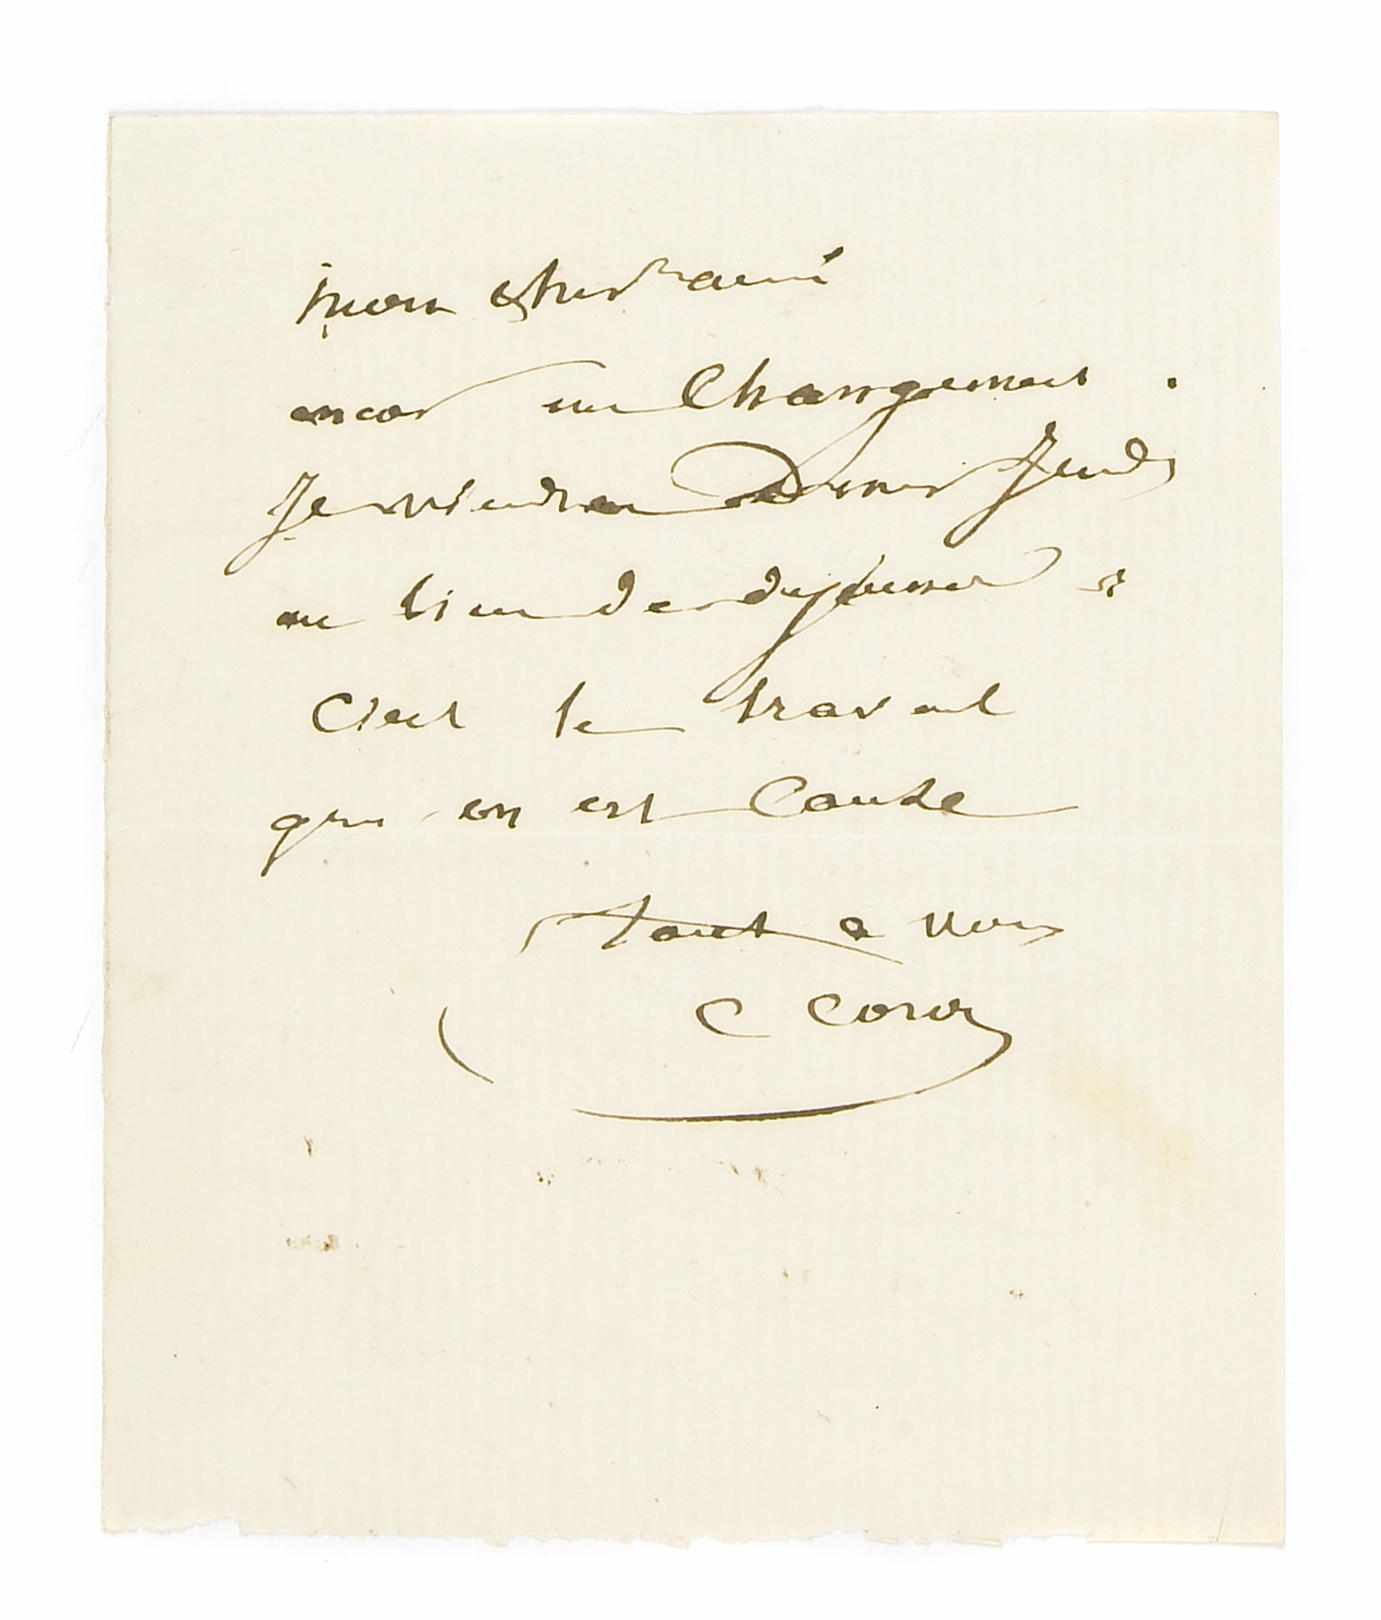 mon cher ami
encor un Changement .
Je viendrai Diner Jeudi
au lieu de dejeuner .
C'est le travail
qui en est Cause
tout a vous
C Corot